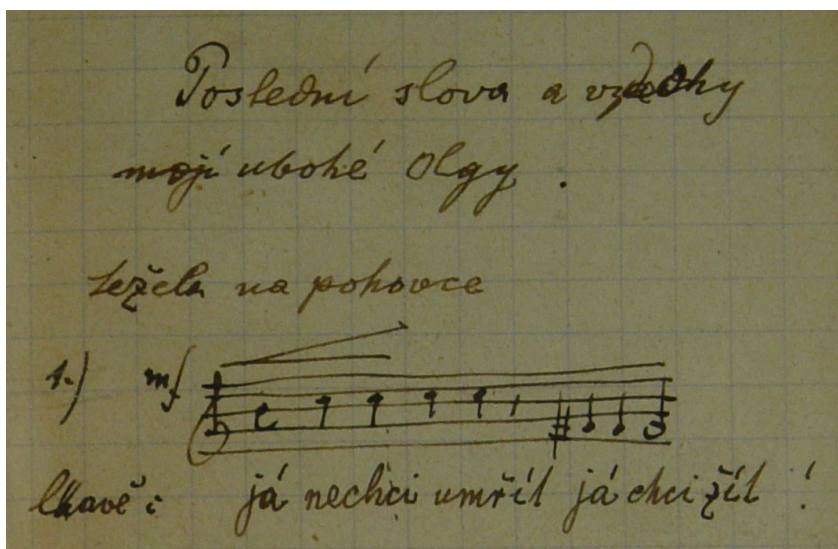 Poslední slova a vzdechy
mojí ubohé Olgy.
Ležela na pohovce
1.) mf
lkavě: já nechci umřít já chci žít!